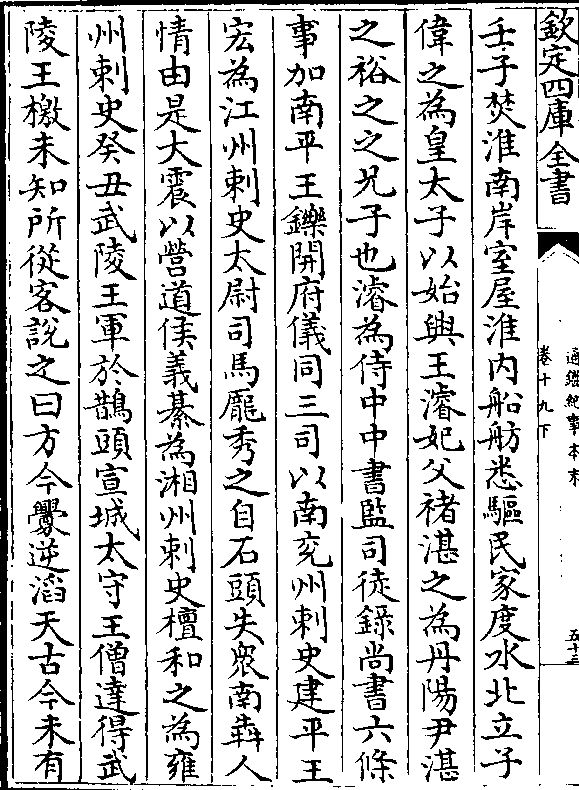 欽定四庫全書
通鑑紀事本末
卷十九下
五十三
壬子焚淮南岸室屋淮内船舫悉驅民家度水北立子
偉之為皇太子以始興王濬妃父褚湛之為丹陽尹湛
之裕之之兄子也濬為侍中中書監司徒錄尚書六條
事加南平王鑠開府儀同三司以南兖州刺史建平王
宏為江州刺史太尉司馬龎秀之自石頭失衆南奔人
情由是大震以營道侯義綦為湘州刺史檀和之為雍
州刺史癸丑武陵王軍於鵲頭宣城太守王僧達得武
陵王檄未知所從客說之曰方今釁逆滔天古今未有